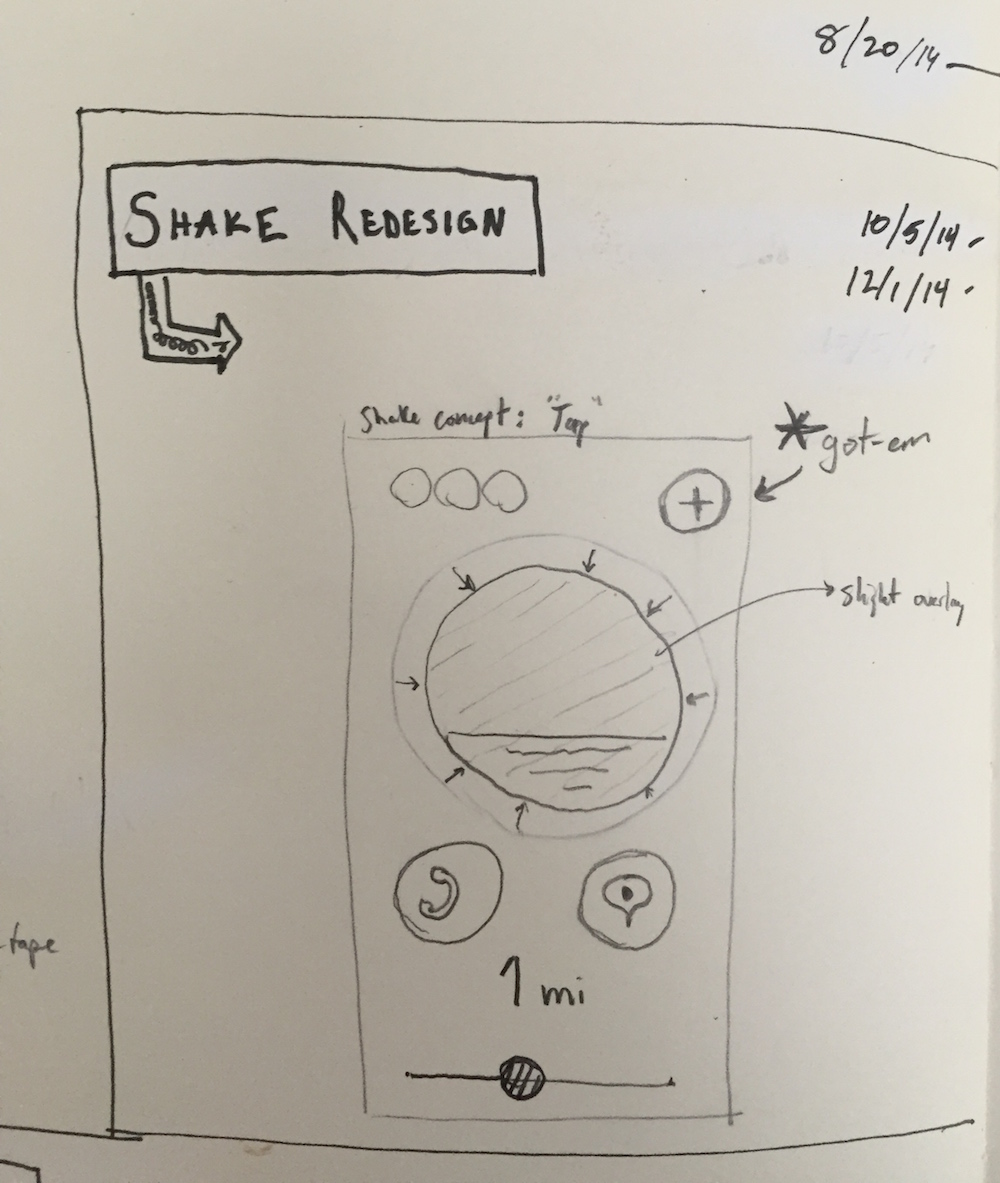 8/20/14
SHAKE REDESIGN
10/5/14
12/1/14
Shake concept: "Tap"
*got-em
+
slight overlay
-tape
1 mi